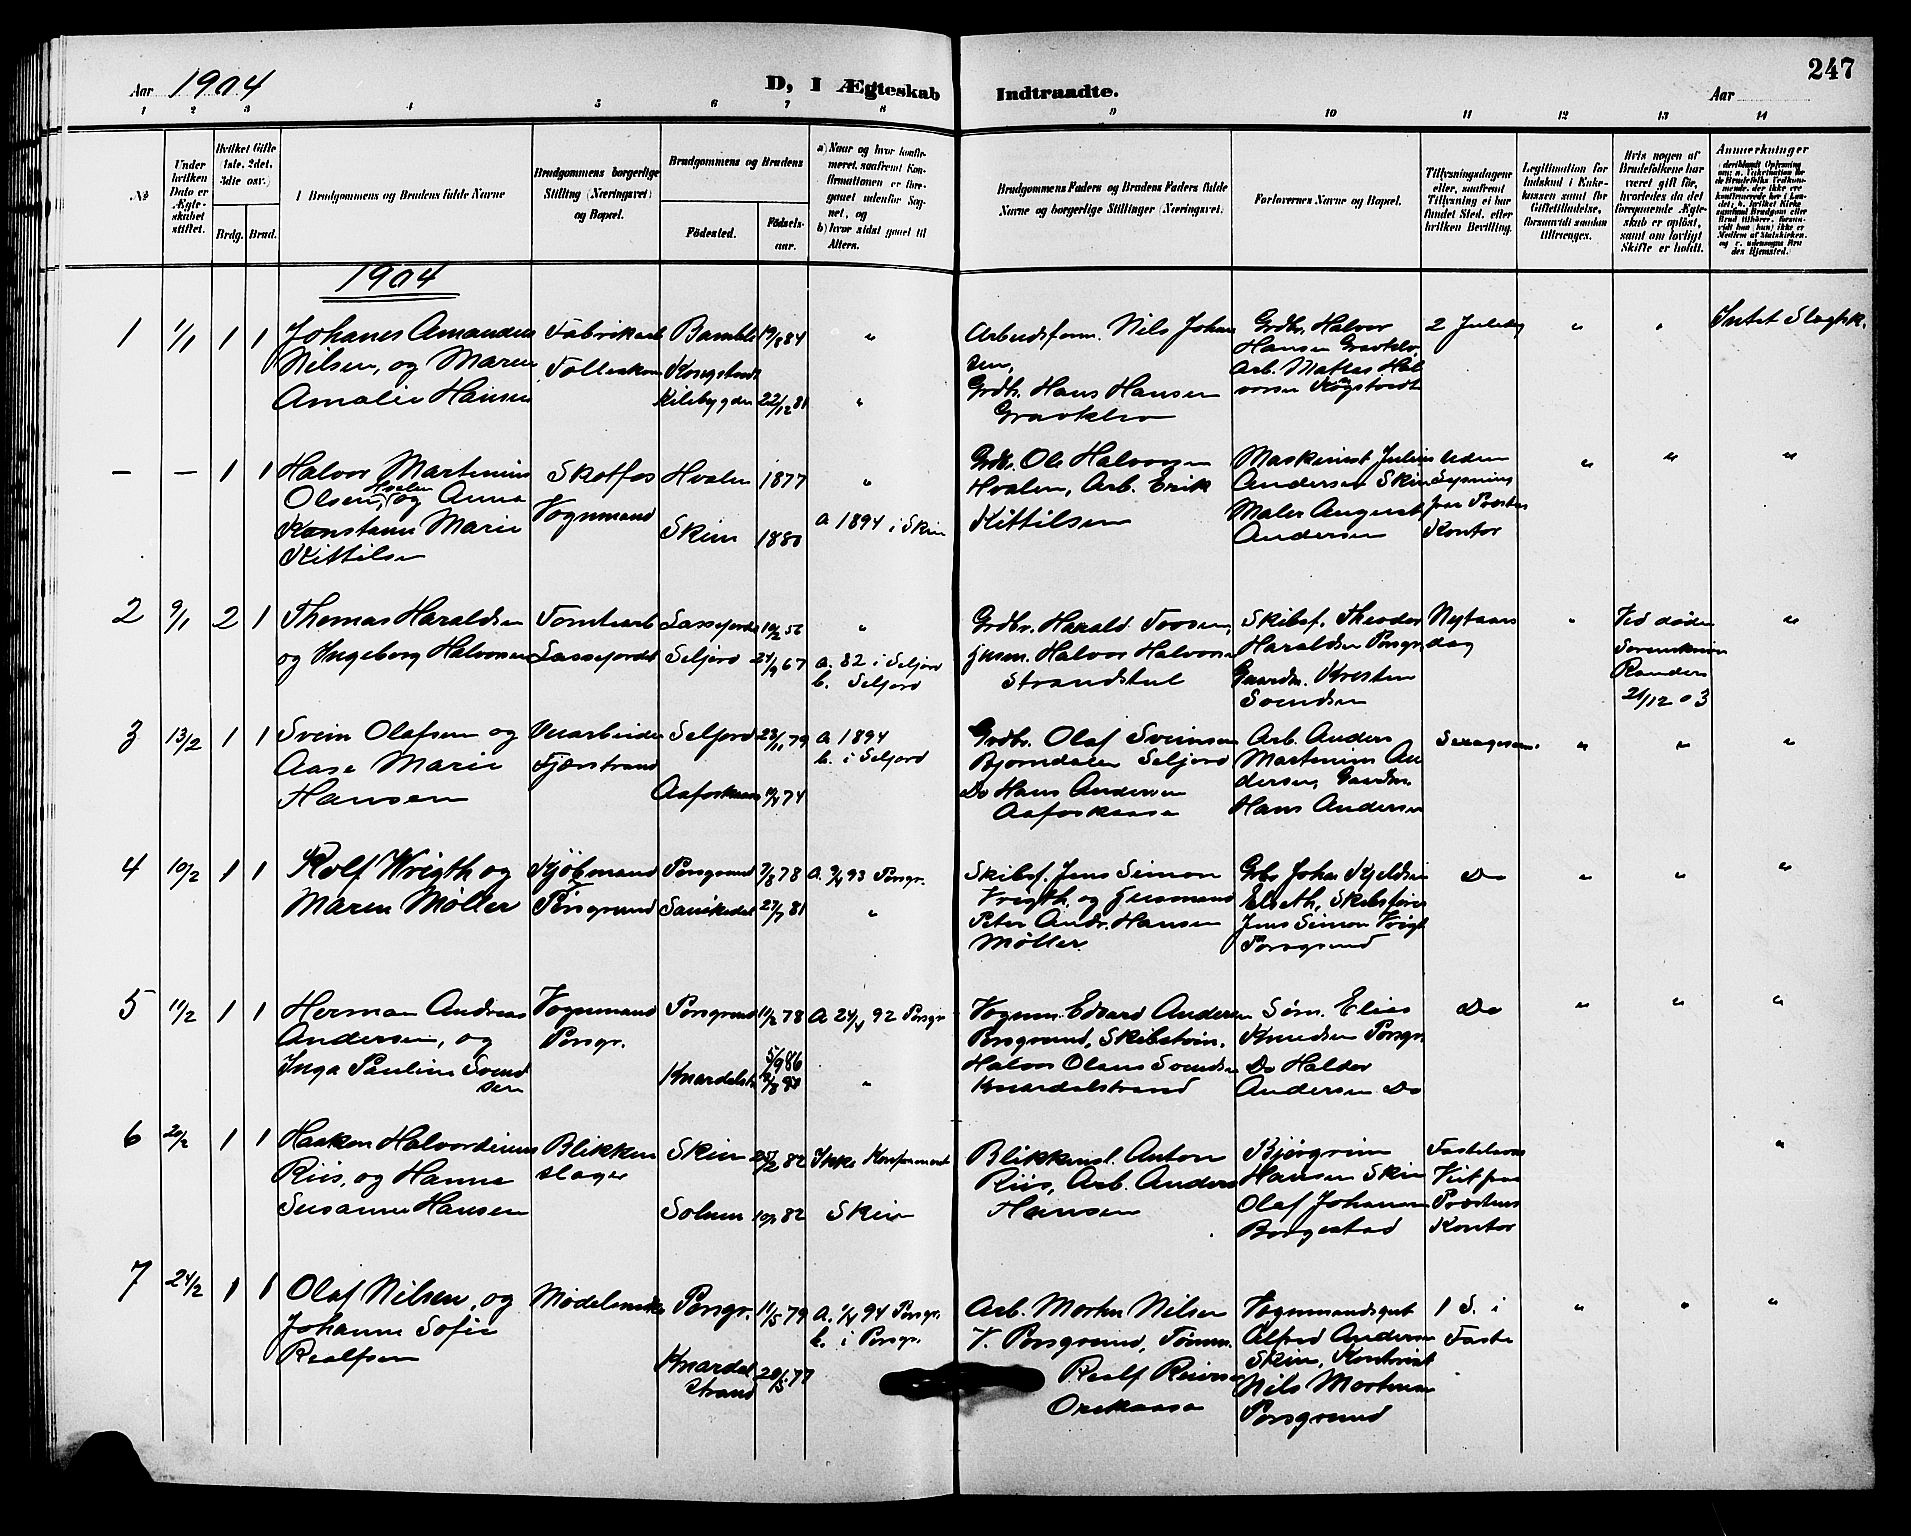 Aar 1904
D, I Ægteskab Indtraadte.
Aar
247
1 2 3 4 5 6 7 8 9 10 11 12 13 14
No.
Under hvilken Dato er Ægteskabet stiftet.
Hvilket Gifte (1ste, 2det, 3die osv.)
Brdg. Brud.
Brudgommens og Brudens fulde Navne
Brudgommens borgerlige Stilling (Næringsvei) og Bopæl.
Brudgommens og Brudens
Fødested.
Fødselsaar.
a) Naar og hvor konfirmeret, saafremt Konfirmationen er foregaaet udenfor Sognet, og
b) hvor sidst gaaet til Alters.
Brudgommens Faders og Brudens Faders fulde Navne og borgerlige Stillinger (Næringsvei).
Forlovernes Navne og Bopæl.
Tillysningsdagene eller, saafremt Tillysning ei har fundet Sted, efter hvilken Bevilling.
Legitimation for Indskud i Enkekassen samt for Giftetilladelse, forsaavidt saadan tiltrænges.
Hvis nogen af Brudefolkene har været gift før, hvorledes da det foregaaende Ægteskab er opløst, samt om lovligt Skifte er holdt.
Anmærkninger
1904
1 1/1 1 1 Johanes Amandus Fabrikarb Bamble 19/8 84 "
Nilsen, og Maren
Amalie Hansen
Kilebygden 22/12 81 "
Arbeidsform. Nils Johan
sen,
Grdbr. Hans Hansen
Gravklev
Grdbr. Halvor
Hansen Gravklev
Arb. Matias Hal
vorsen
2 Juledag " " Intet Slægtsk.
— — 1 1 Halvor Martinius Skotfos Hvalen 1877 "
Olsen Hvalen, og Anna Vognmand
Konstanse Marie Skien 1880 a 1894 i Skien
Kittilsen
Grdbr. Ole Halvorsen
Hvalen, Arb. Erik
Kittilsen
Maskinist Julius
Andersen Skien
Maler August
Andersen
Uden
Lysning
fra Præstens
Kontor
" " "
2 9/1 2 1 Thomas Haraldsen Tomtearb Lassefjordet 10/2 56 "
og Ingeborg Halvorsen Lassefjordet Seljord 24/9 67 a. 82 i Seljord
b. Seljord
Grdbr. Harald Tovsen,
Husm. Halvor Halvorsen
Strandstul
Skibsf. Theodor
Haraldsen Porsgr.
Gaardbr. Kresten
Svendsen
Nytaars
dag
" Ved døden
21/12 03
"
3 13/2 1 1 Svein Olafsen og Veiarbeider Seljord 23/11 79 a 1894
Aase Marie Fjærstrand b. i Seljord
Hansen Aafoskaasa 19/4 74
Grdbr. Olaf Sveinsen
Bjorndalen Seljord
Do Hans Andersen
Aafoskaasa
Arb. Anders
Martinius An
dersen, Gaardbr.
Hans Andersen
Sexagesim. " " "
4 10/2 1 1 Rolf Wrigth og Kjøbmand Porsgrund 7/8 78 a. 9/4 93 Porsgr.
Maren Møller Porsgrund Sannikedal 27/7 81 "
Skibsf. Jens Simon
Vrigth og Husmand
Peter Andr. Hansen
Møller
Grbr Johan Kjeldsen
Elseth, Skibsfører
Jens Simon Vrigt
Porsgrund
Do " " "
5 11/2 1 1 Herman Andreas Vognmand Porsgrund 11/2 78 a 24/4 92 Porsgr.
Andersen, og Porsgr. 5/9 86
Inga Pauline Svend Knardalst. 9/8 80 "
sen
Vognm. Edvard Andersen
Porsgrund, Skibstøm.
Halvor Olaus Svendsen
Knardalstrand
Søm. Elias
Knudsen Porsgr.
Do Haldor
Andersen Do
Do " " "
6 20/2 1 1 Haakon Halvordinius Blikken Skien 25/2 82 Ikke Konfirmeret
Riis, og Hanna slager
Susanne Hansen Solum 10/1 82 Skien
Blikkensl. Anton
Riis, Arb. Anders
Hansen
Bjørgvin
Hansen Skien
Olaf Johansen
Borgestad
Fastelavns
Viet fra
Præstens
Kontor
"
7 24/2 1 1 Olaf Nilsen, og Modelsnedker Porsgr. 11/5 79 a. 1/4 94 Porsgr.
Johanne Sofie b. i Porsgr.
Realfsen Knardal
strand 20/5 77
Arb. Morten Nilsen
V. Porsgrund, Tømm.
Realf Reiersen
Orekaasa
Vognmandsgut
Alfred Andersen
Skien, Kontorist
Nils Mortensen
Porsgrund
1 S. i
Faste
" " "